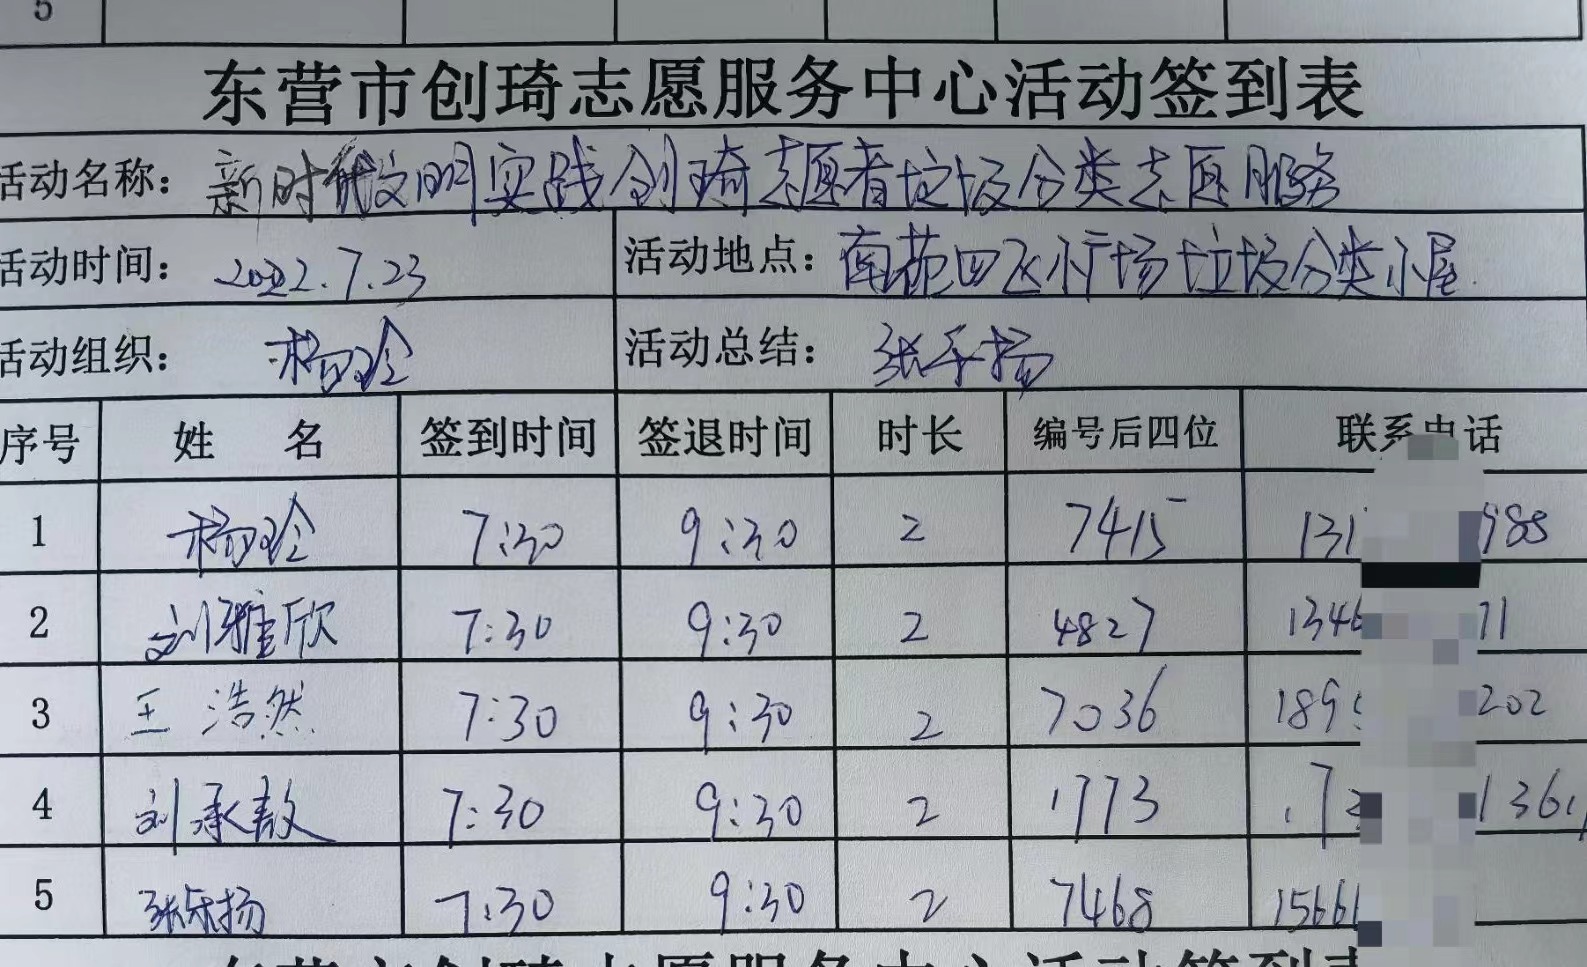 5
东营市创琦志愿服务中心活动签到表
活动名称：新时代文明实践创琦志愿者垃圾分类志愿服务
活动时间：2022.7.23 活动地点：南苑四区小广场垃圾分类小屋
活动组织：杨玲 活动总结：张乐扬
序号 姓名 签到时间 签退时间 时长 编号后四位 联系电话
1 杨玲 7:30 9:30 2 7415 131 988
2 刘雅欣 7:30 9:30 2 4827 1346 71
3 王浩然 7:30 9:30 2 7036 189 202
4 刘承敖 7:30 9:30 2 1773 17 1361
5 张乐扬 7:30 9:30 2 7468 1566
东营市创琦志愿服务中心活动签到表